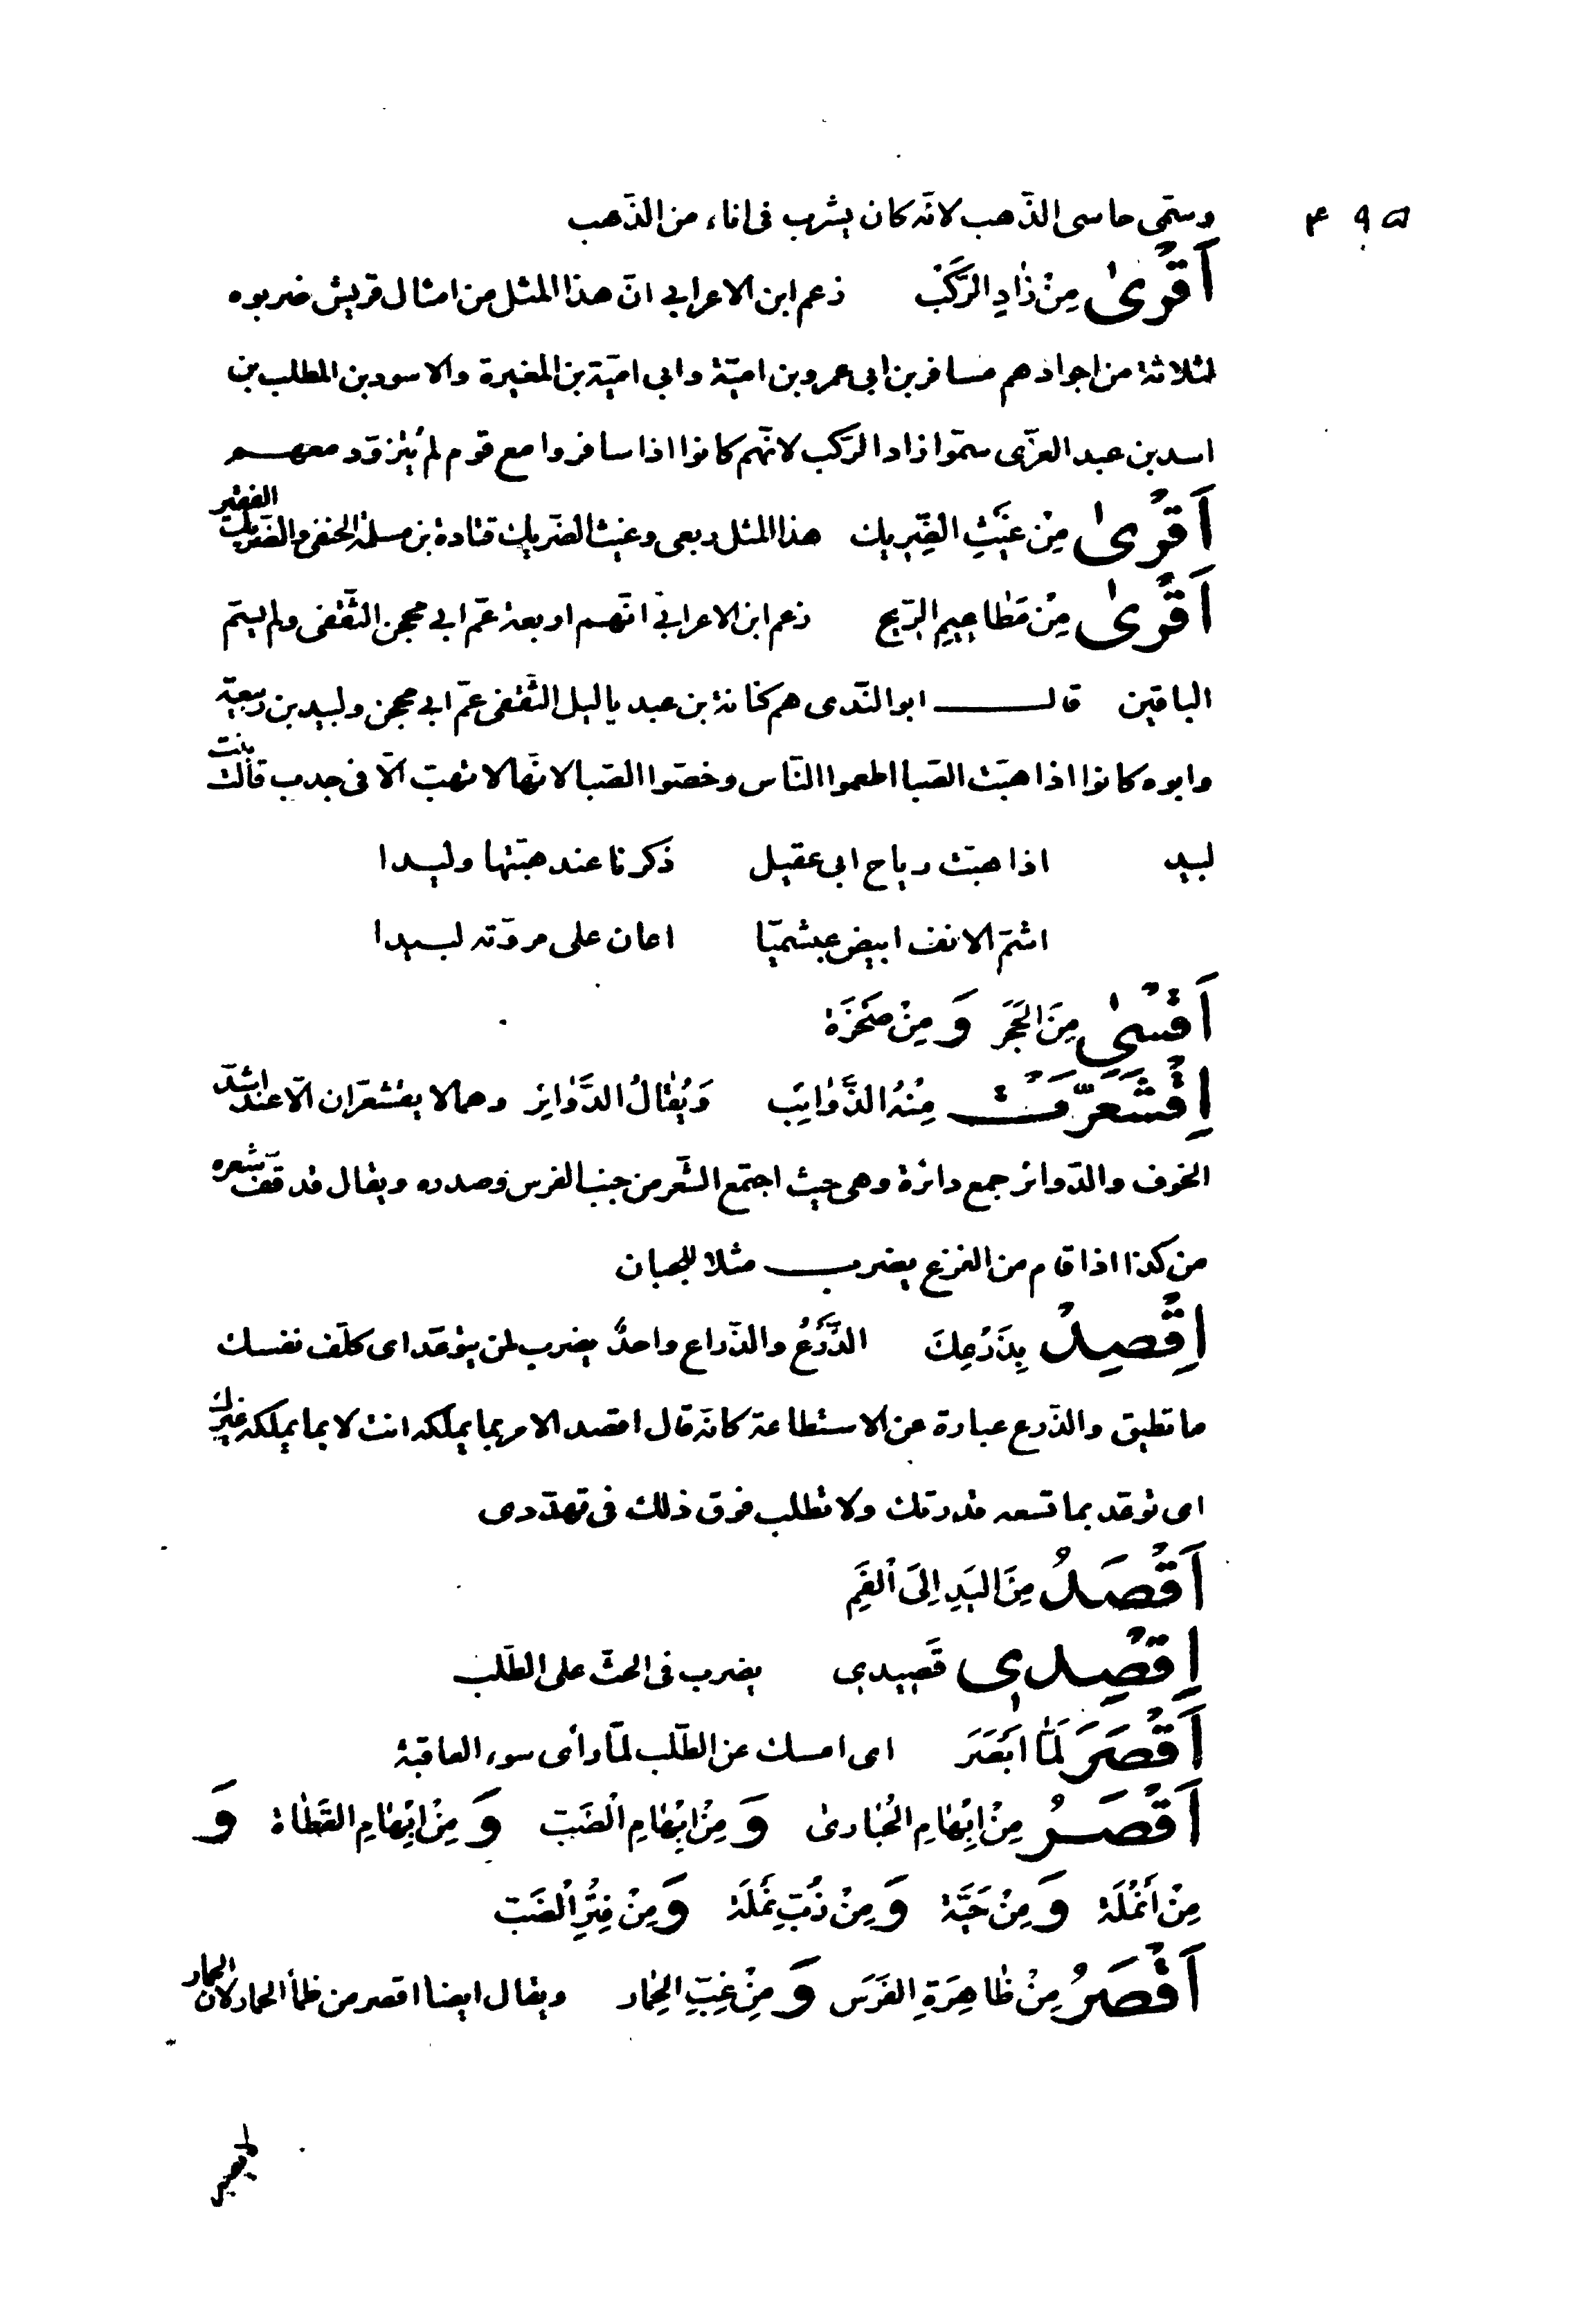 ۴۹۵
وسمّى حاسى الذّهب لانّه كان يشرب فى اناء من الذّهب
اَقْرىٰ مِنْ زٰادِ الرَّكْبِ زعم ابن الاعرابي انّ هذا المثل من امثال قريش ضربوه
لثلاثة من اجوادهم مسافر بن ابى عمرو بن اميّة وابى اميّة بن المغيرة والاسود بن المطلب بن
اسد بن عبد العزّى سمّوا زاد الرّكب لانّهم كانوا اذا سافروا مع قوم لم يتزوّد معهم
اَقْرىٰ مِنْ غَيْثِ الضَّرِيك هذا المثل ربعى وغيث الضّريك قتادة بن مسلمة الحنفى والضّريك الفقير
اَقْرىٰ مِنْ مَطٰاعِيمِ الرّيحِ زعم ابن الاعرابيّ انّهم اربعة عمّ ابي محجن الثّقفى ولم يسمّ
الباقين قال ابو النّدى هم كنانة بن عبد ياليل الثّقفى عمّ ابي محجن ولبيد بن ربيعة
وابوه كانوا اذا هبّت الصّبا اطعموا النّاس وخصّوا الصّبا لانّها لا تهبّ الّا فى جدب قالت بنت
لبيد اذا هبّت رياح ابى عقيل ذكرنا عند هبّتها وليدا
اشمّ الانف ابيض عبشميّا اعان على مروّته لبيدا
اَقْسىٰ مِنَ الحَجَرِ وَ مِنْ صَخْرَة
اِقْشَعَرَّتْ مِنْهُ الذَّوٰائِبُ وَيُقٰالُ الدَّوٰائِرُ وهما لا يقشعرّان الّا عند اشدّ
الخوف والدّوائر جمع دائرة وهى حيث اجتمع الشّعر من جنب الفرس وصدره ويقال قد قفّ شعره
من كذا اذا قام من الفزع يضرب مثلا للجبان
اِقْصِدْ بِذَرْعِكَ الذَّرْعُ والذّراع واحدٌ يضرب لمن يتوعّد اى كلّف نفسك
ما تطيق والذّرع عبارة عن الاستطاعة كانّه قال اقصد الامر بما يملكه انت لا بما يملكه غيرك
اى توعّد بما تسعه قدرتك ولا تطلب فوق ذلك فى تهدّدى
اَقْصَدُ مِنَ اليَدِ اِلَى الْفَمِ
اِقْصِدى قَصِيدى يضرب فى الحثّ على الطّلب
اَقْصَرَ لَمّٰا اَبْصَرَ اى امسك عن الطّلب لمّا رأى سوء العاقبة
اَقْصَرُ مِنْ اِبْهٰامِ الْحُبٰارىٰ وَ مِنْ اِبْهٰامِ الْضَبّ وَ مِنْ اِبْهٰامِ القَطٰاة وَ
مِنْ اَنْمُلَة وَ مِنْ حَبَّة وَ مِنْ زُبّ نَمْلَة وَ مِنْ فِتْرِ الْضَبّ
اَقْصَرُ مِنْ ظٰاهِرَةِ الفَرَس وَ مِنْ غِبِّ الحِمٰار ويقال ايضا اقصر من ظمأ الحمار لانّ الحمار